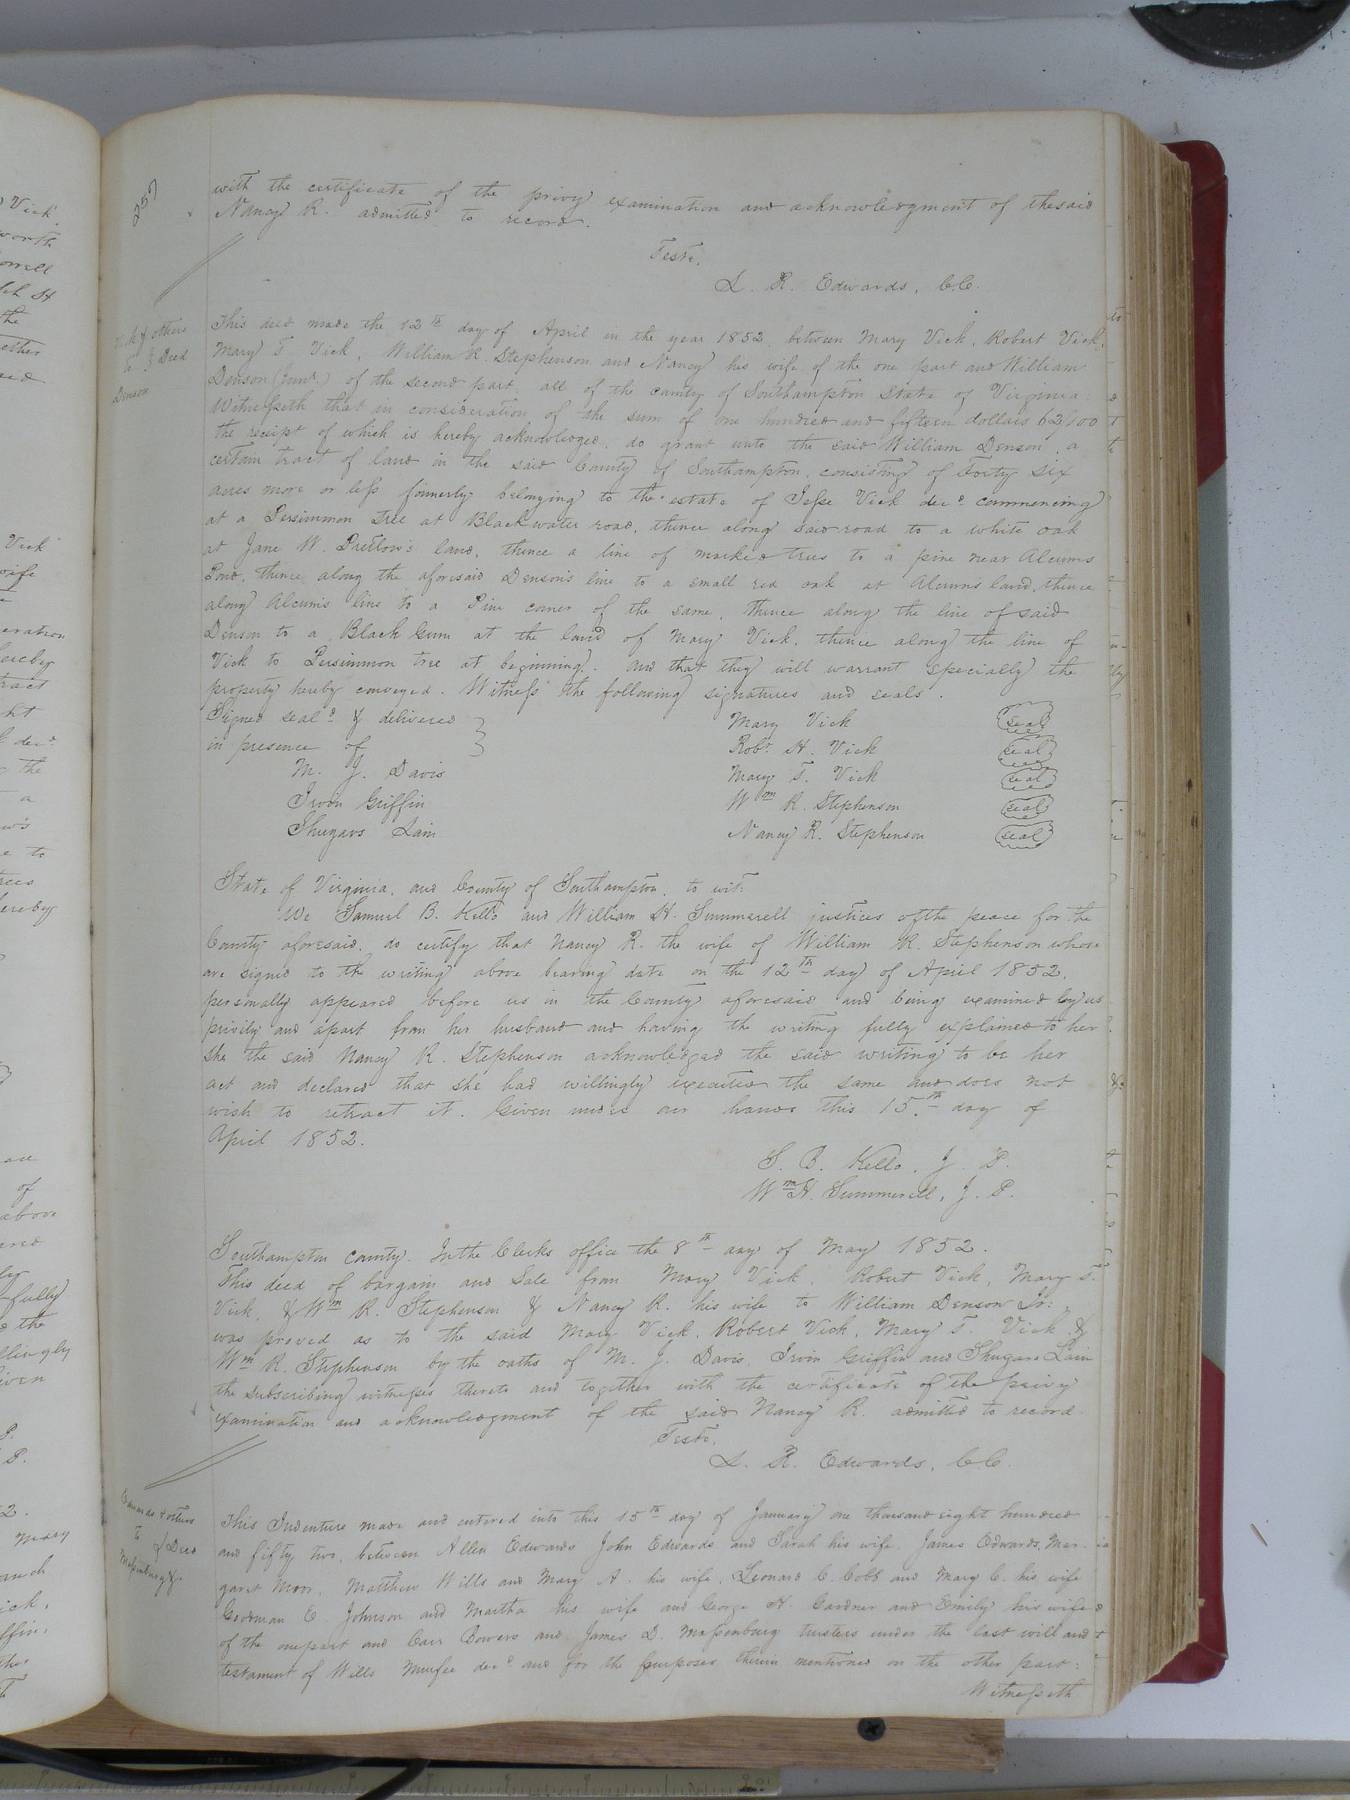 257
with the certificate of the privy examination and acknowledgment of the said
Nancy R. admitted to record.
Teste.
L. R. Edwards, C.C.
Vick & others
to } Deed
Denson
This deed made the 12th day of April in the year 1852 between Mary Vick, Robert Vick,
Mary T. Vick, William R. Stephenson and Nancy his wife of the one part and William
Denson (Junr.) of the second part all of the county of Southampton State of Virginia:
Witnesseth that in consideration of the sum of one hundred and fifteen dollars 62/100
the receipt of which is hereby acknowledged, do grant unto the said William Denson, a
certain tract of land in the said County of Southampton, consisting of Forty six
acres more or less formerly belonging to the estate of Jesse Vick decd. commencing
at a Persimmon tree at Blackwater road, thence along said road to a white oak
at Jane W. Pretlow's land, thence a line of marked trees to a pine near Alcurns
Pond, thence along the aforesaid Denson's line to a small red oak at Alcurns land, thence
along Alcurn's line to a Pine corner of the same, thence along the line of said
Denson to a Black Gum at the land of Mary Vick, thence along the line of
Vick to Persimmon tree at beginning. And that they will warrant specially the
property hereby conveyed. Witness the following signatures and seals.
Signed seald & delivered }
in presence of
M. J. Davis
Irvin Griffin
Shugars Lain
Mary Vick seal
Robt. H. Vick seal
Mary T. Vick seal
Wm R. Stephenson seal
Nancy R. Stephenson seal
State of Virginia, and County of Southampton, to wit:
We Samuel B. Kello and William H. Summerell justices of the peace for the
County aforesaid, do certify that Nancy R. the wife of William R. Stephenson whose
are signed to the writing above bearing date on the 12th day of April 1852,
personally appeared before us in the County aforesaid and being examined by us
privily and apart from her husband and having the writing fully explained to her
she the said Nancy R. Stephenson acknowledged the said writing to be her
act and declared that she had willingly executed the same and does not
wish to retract it. Given under our hands this 15th day of
April 1852.
S. B. Kello, J. P.
Wm H. Summerell, J. P.
Southampton county. In the Clerks office the 8th day of May 1852.
This deed of bargain and Sale from Mary Vick, Robert Vick, Mary T.
Vick, & Wm R. Stephenson & Nancy R. his wife to William Denson Jr:
was proved as to the said Mary Vick, Robert Vick, Mary T. Vick &
Wm R. Stephenson by the oaths of M. J. Davis, Irvin Griffin and Shugars Lain
the subscribing witnesses thereto and together with the certificate of the privy
examination and acknowledgment of the said Nancy R. admitted to record.
Teste.
L. R. Edwards, C.C.
Edwards & others
to } Deed
Massenburg &c
This Indenture made and entered into this 15th day of January one thousand eight hundred
and fifty two, between Allen Edwards John Edwards and Sarah his wife, James Edwards, Mar-
garet Moor, Matthew Wills and Mary A. his wife, Leonard C. Cobb and Mary C. his wife
Goodman E. Johnson and Martha his wife and George H. Gardner and Emily his wife
of the one part and Carr Bowers and James D. Massenburg trusters under the last will and
testament of Wills Murfee decd and for the purposes therein mentioned on the other part:
Witnesseth